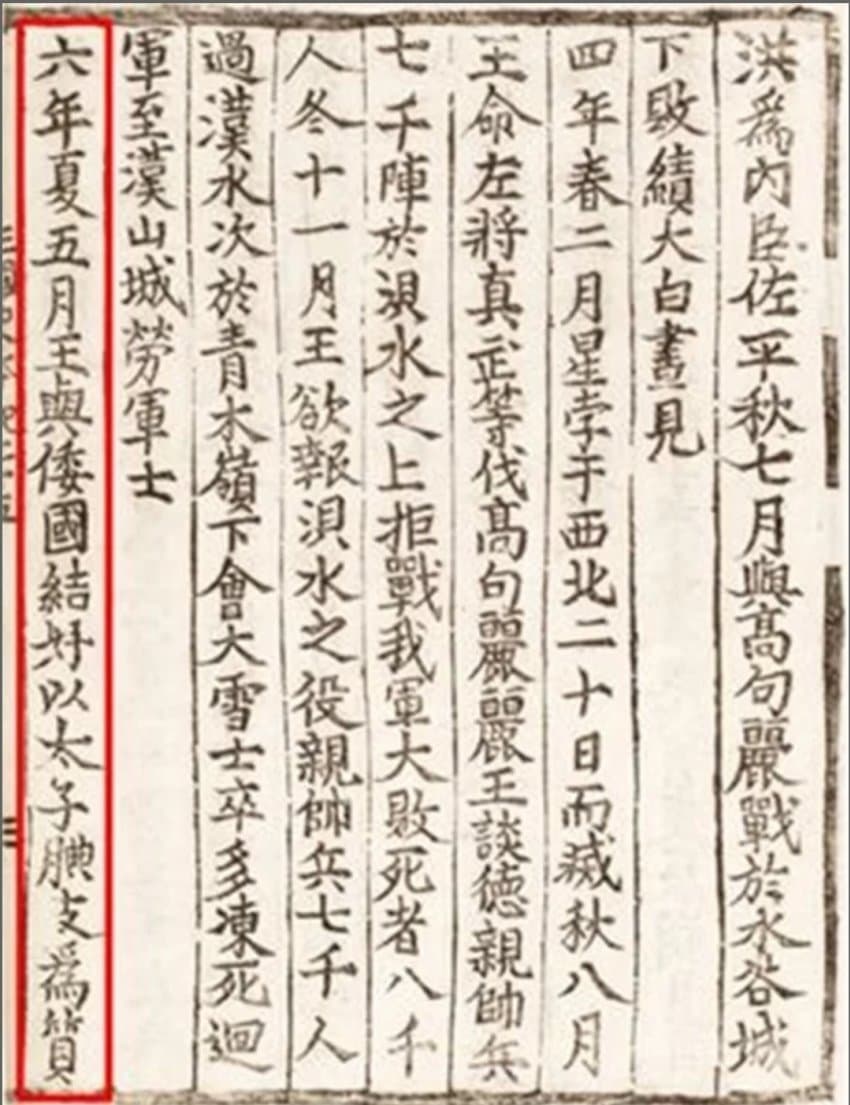 洪爲內臣佐平秋七月與高句麗戰於水谷城
下敗績太白晝見
四年春二月星孛于西北二十日而滅秋八月
王命左將真武等伐高句麗麗王談德親帥兵
七千陣於浿水之上拒戰我軍大敗死者八千
人冬十一月王欲報浿水之役親帥兵七千人
過漢水次於青木嶺下會大雪士卒多凍死迴
軍至漢山城勞軍士
六年夏五月王與倭國結好以太子腆支爲質